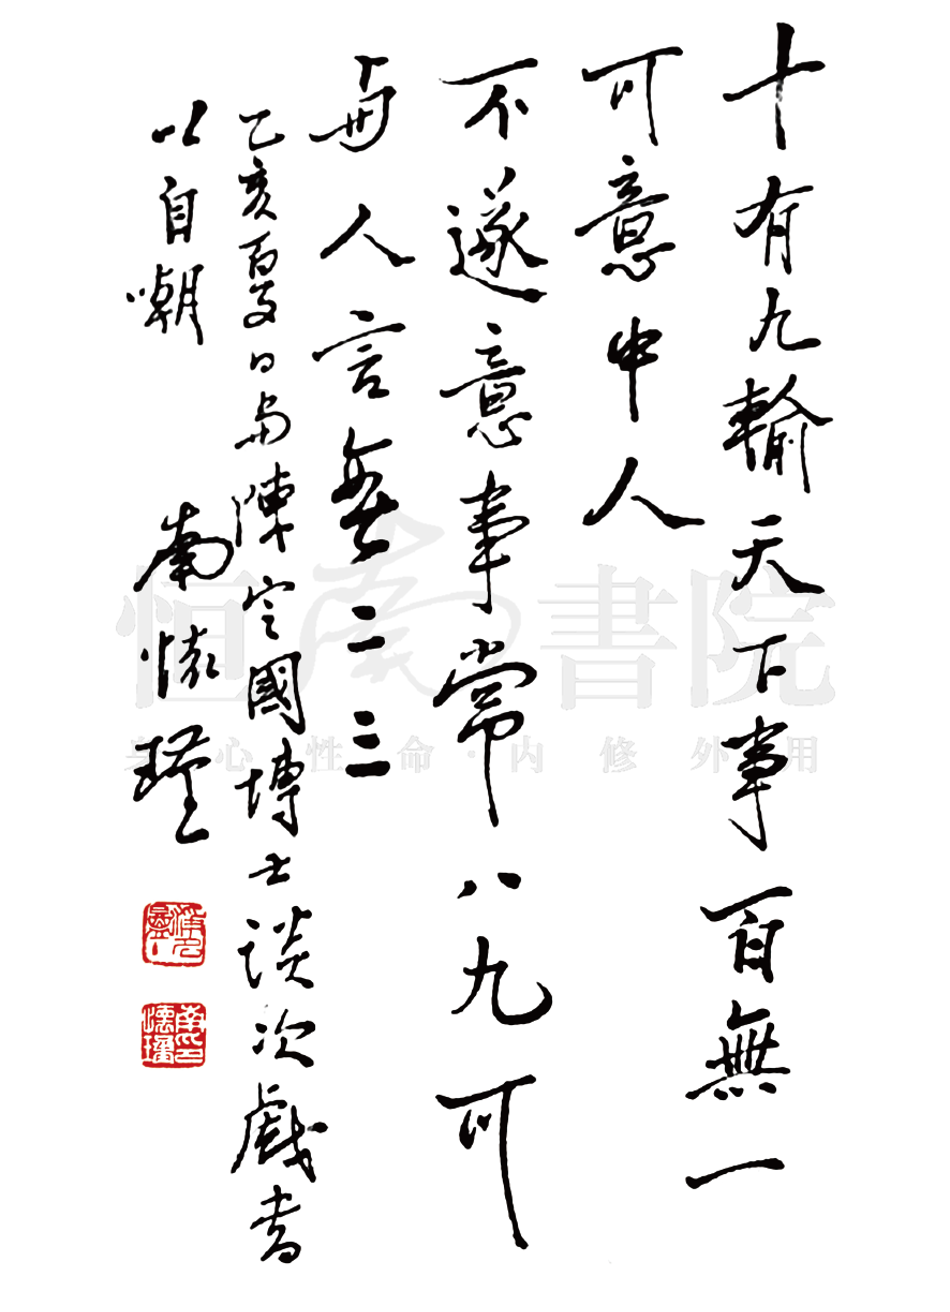 十有九輸天下事百無一
可意中人
不遂意事常八九可
與人言無二三
乙亥夏日與陳定國博士談次戲書
以自嘲
南懷瑾
南懷瑾印
恒南書院
身心性命·内修外用